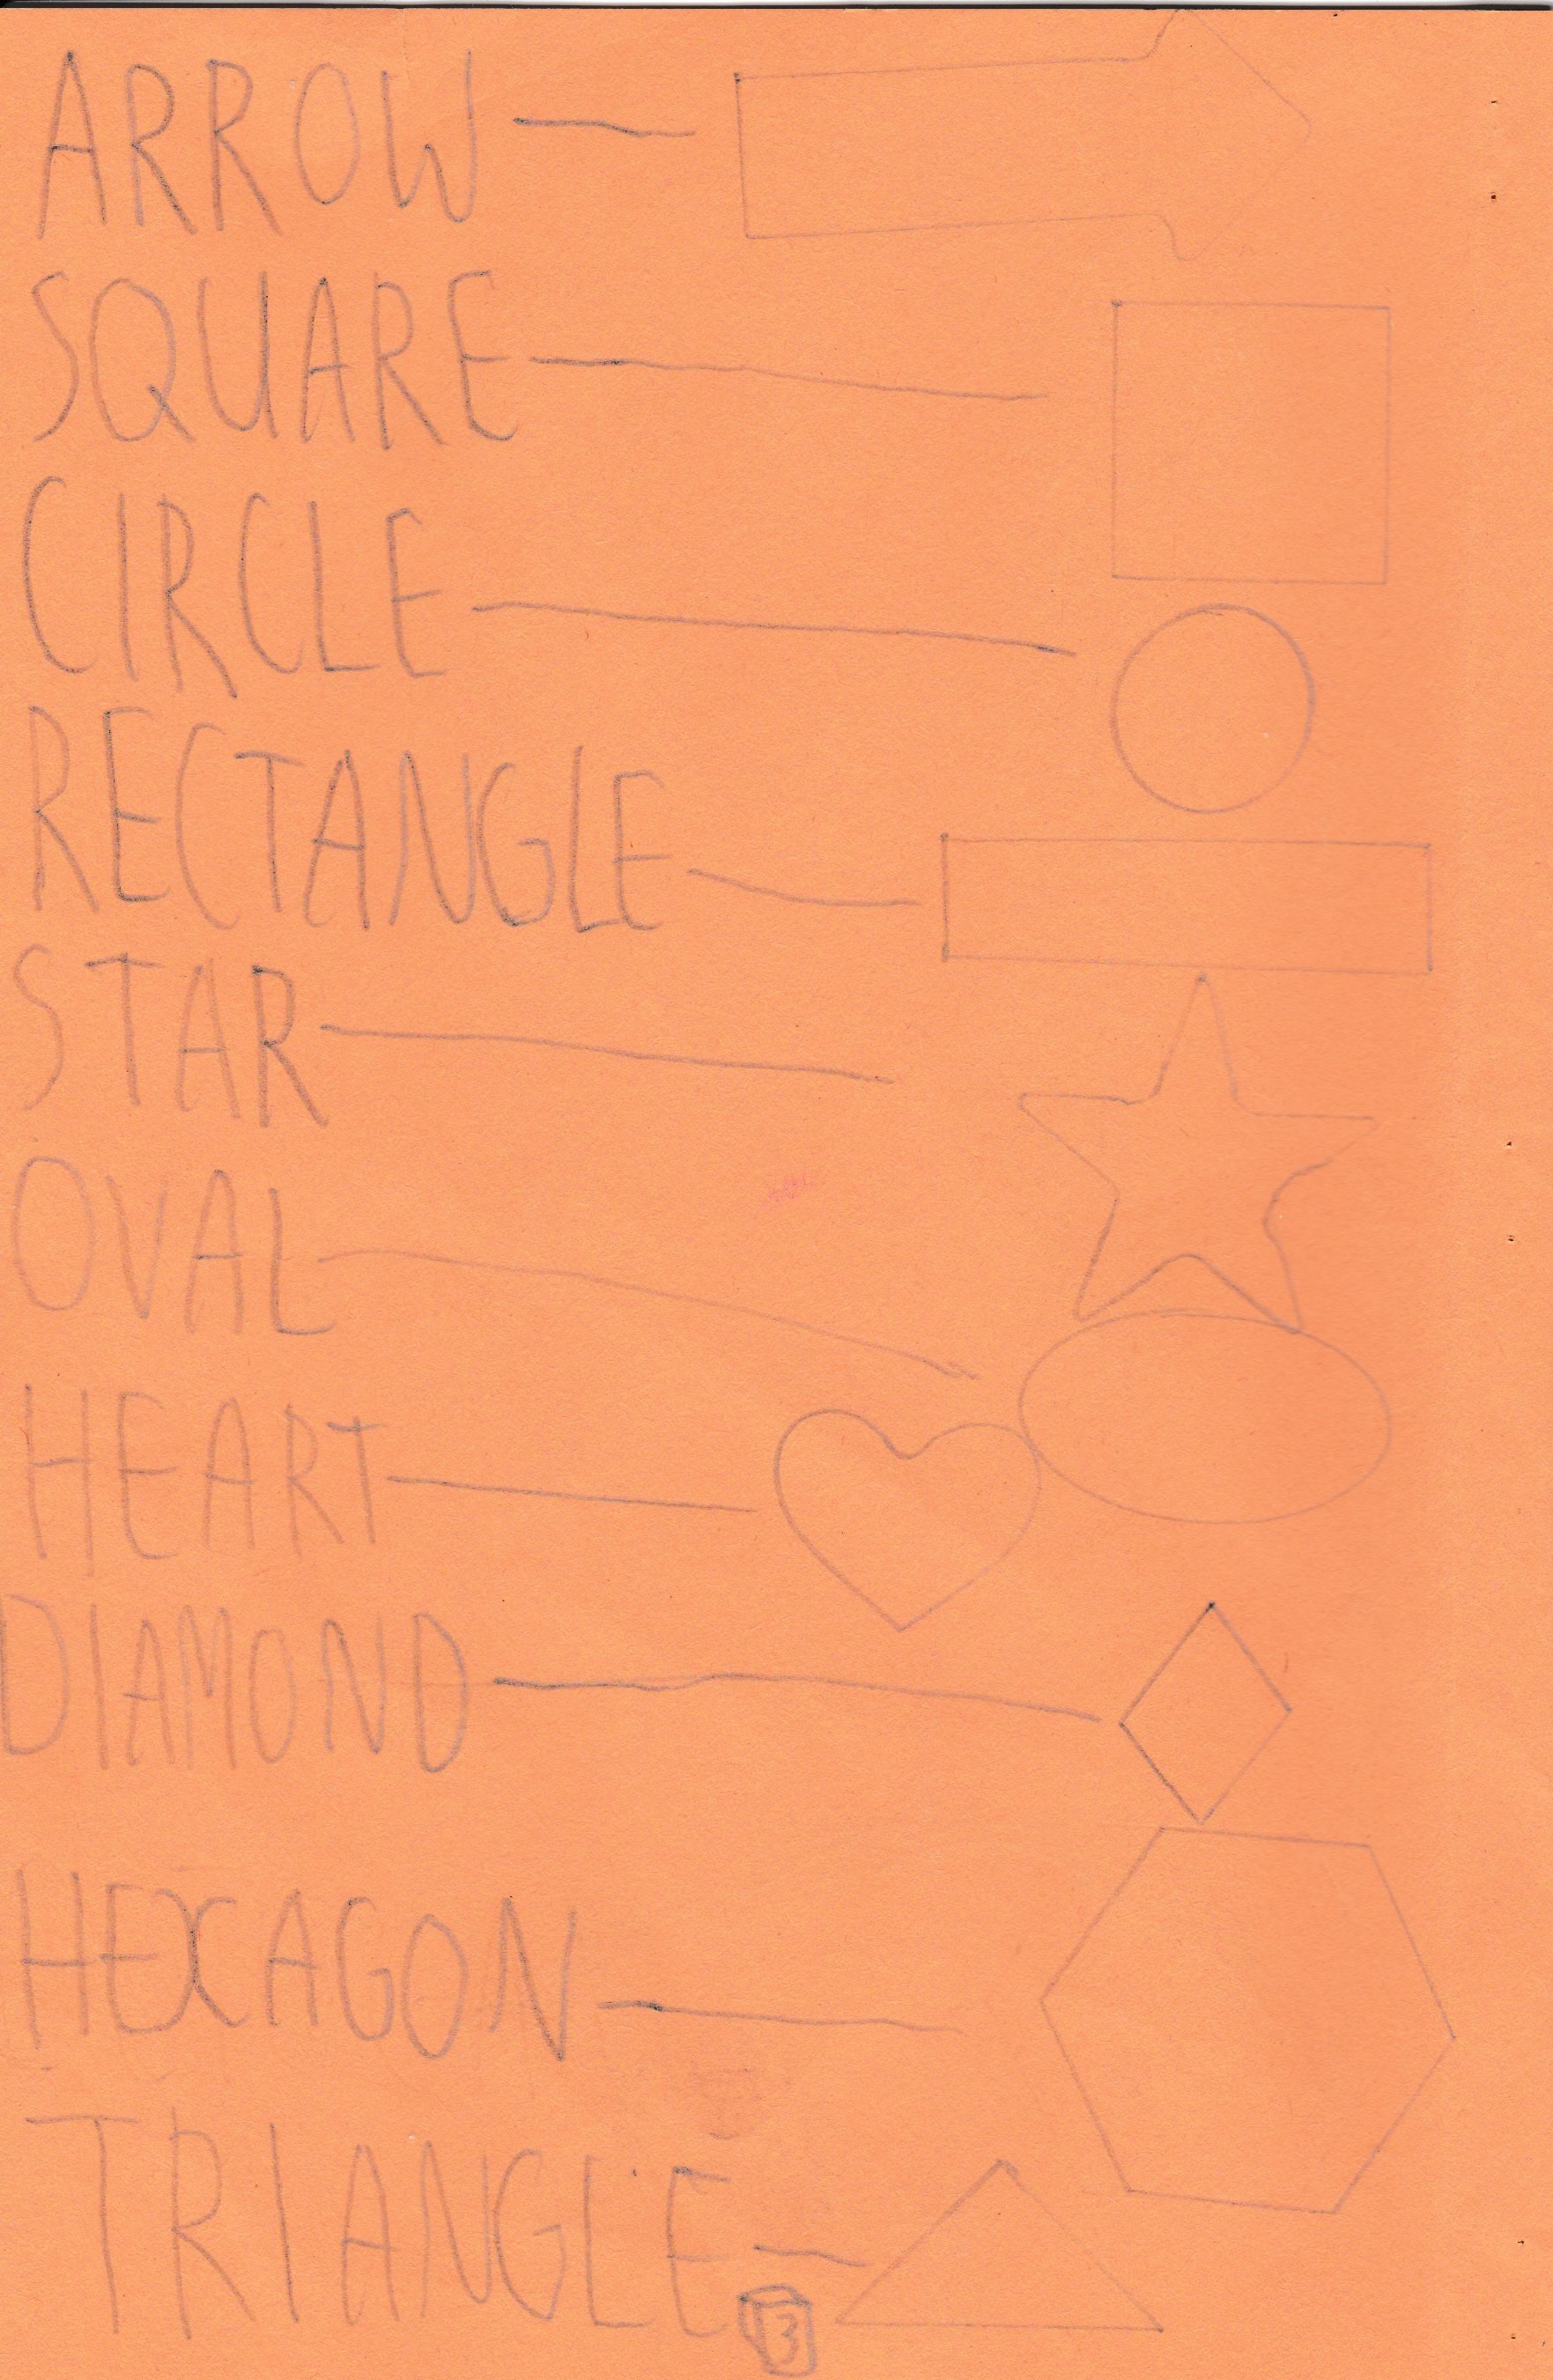 ARROW
SQUARE
CIRCLE
RECTANGLE
STAR
OVAL
HEART
DIAMOND
HEXAGON
TRIANGLE
3